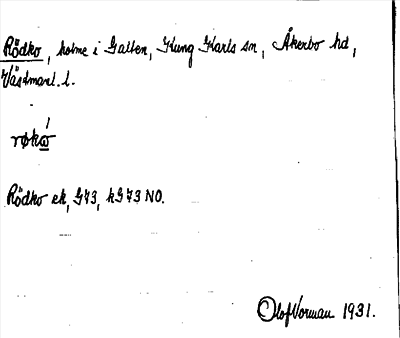 Rödko, holme i Galten, Kung Karls sn, Åkerbo hd,
Västmanl. l.
Rödko ek, G73, kG73 NO.
Olof Vorman 1931.